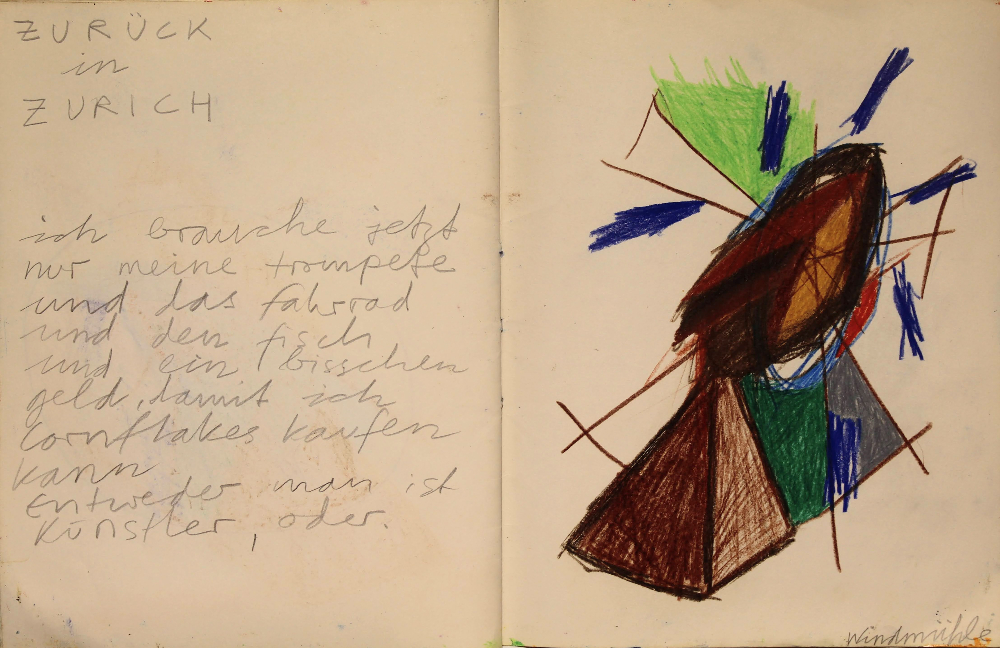 ZURÜCK
in
ZURICH
ich brauche jetzt
nur meine trompete
und das fahrrad
und den fisch
und ein bisschen
geld, damit ich
cornflakes kaufen
kann
entweder man ist
künstler, oder.
Windmühle